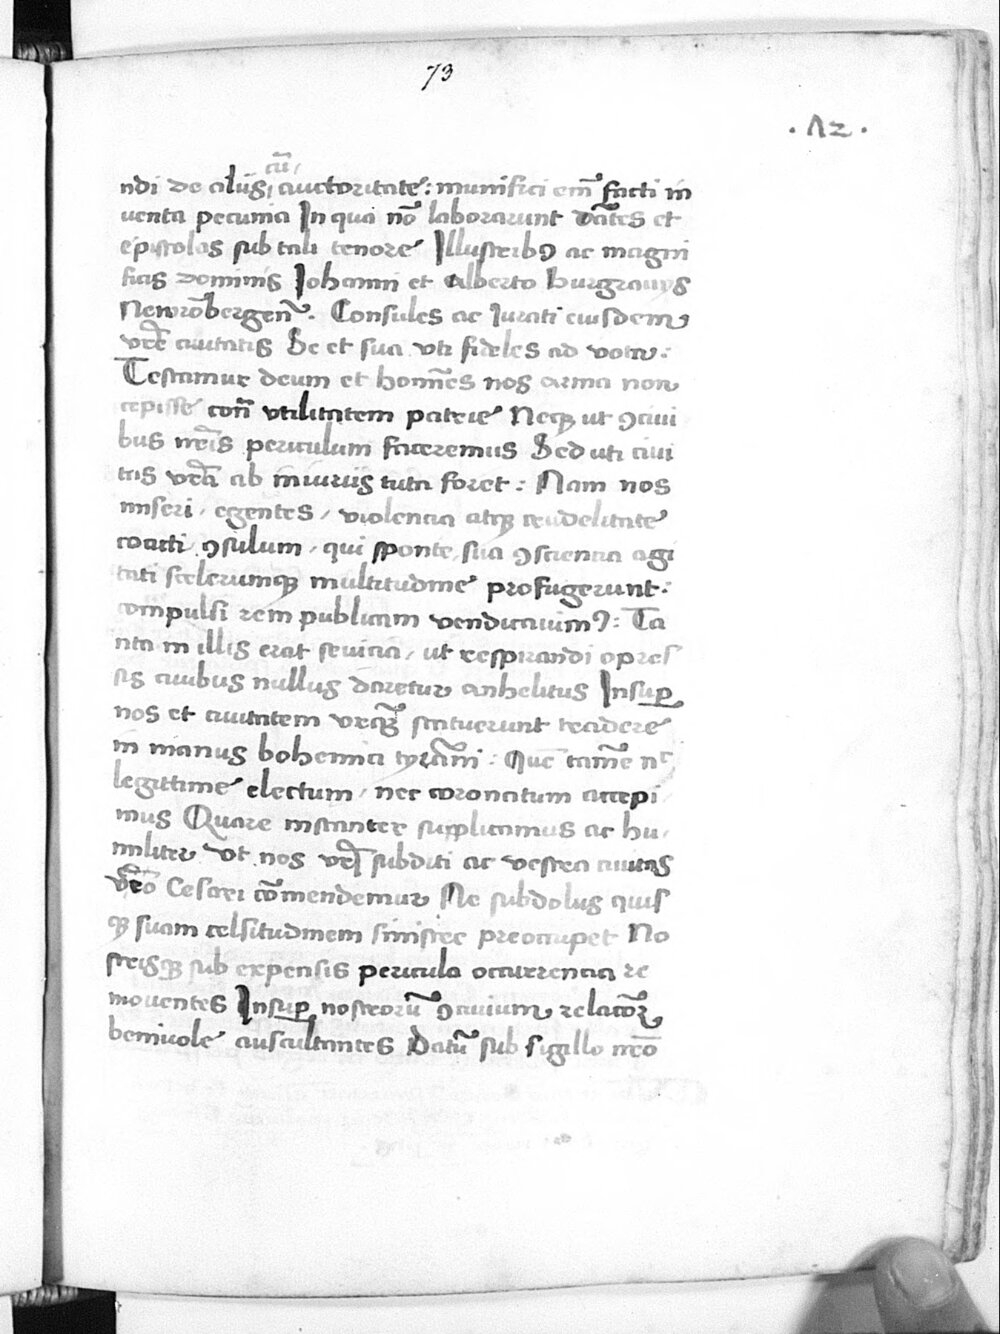 73
. Λ2 .
cū
ndi de aliis auctoritate : munifici em̄ facti in
uenta pecunia In qua nō laborarunt dātes et
epistolas sub tali tenore Illustribꝯ ac magni
ficis dominis Johanni et Alberto burgrauiis
Newrōbergen̄ . Consules ac Iurati eiusdem
vrē ciuitatis Se et sua vti fideles ad vota :
Testamur deum et homēs nos arma non
cepisse con̄ vtilitatem patrie Neqꝫ ut ꝯciui
bus nr̄is periculum faceremus Sed uti ciui
tas vrā ab iniuriis tuta foret : Nam nos
miseri / egentes / violencia atqꝫ crudelitate
coacti ꝯsulum / qui sponte sua ꝯsciencia agi
tati scelerumqꝫ multitudine profugerunt :
compulsi rem publicam vendicauimꝯ : Ta
nta in illis erat seuicia / ut respirandi opres
sis ciuibus nullus daretur anhelitus Insuꝑ
nos et ciuitatem vrāqꝫ statuerunt tradere
in manus bohemia tyrāni : Quē tamē nc
legittime electum / nec coronatum accepi /
mus Quare instanter supplicamus ac hu /
militer Vt nos vrī subditi ac vestra ciuitas
vrō Cesarei cōmendemur Ne subdolus quis
qꝫ suam celsitudinem sinistre preoccupet No
strisqꝫ sub expensis pericula occurrencia re
mouentes Insuꝑ nostrorū ꝯciuium relatōꝫ
beniuole auscultantes Datū sub sigillo nr̄o